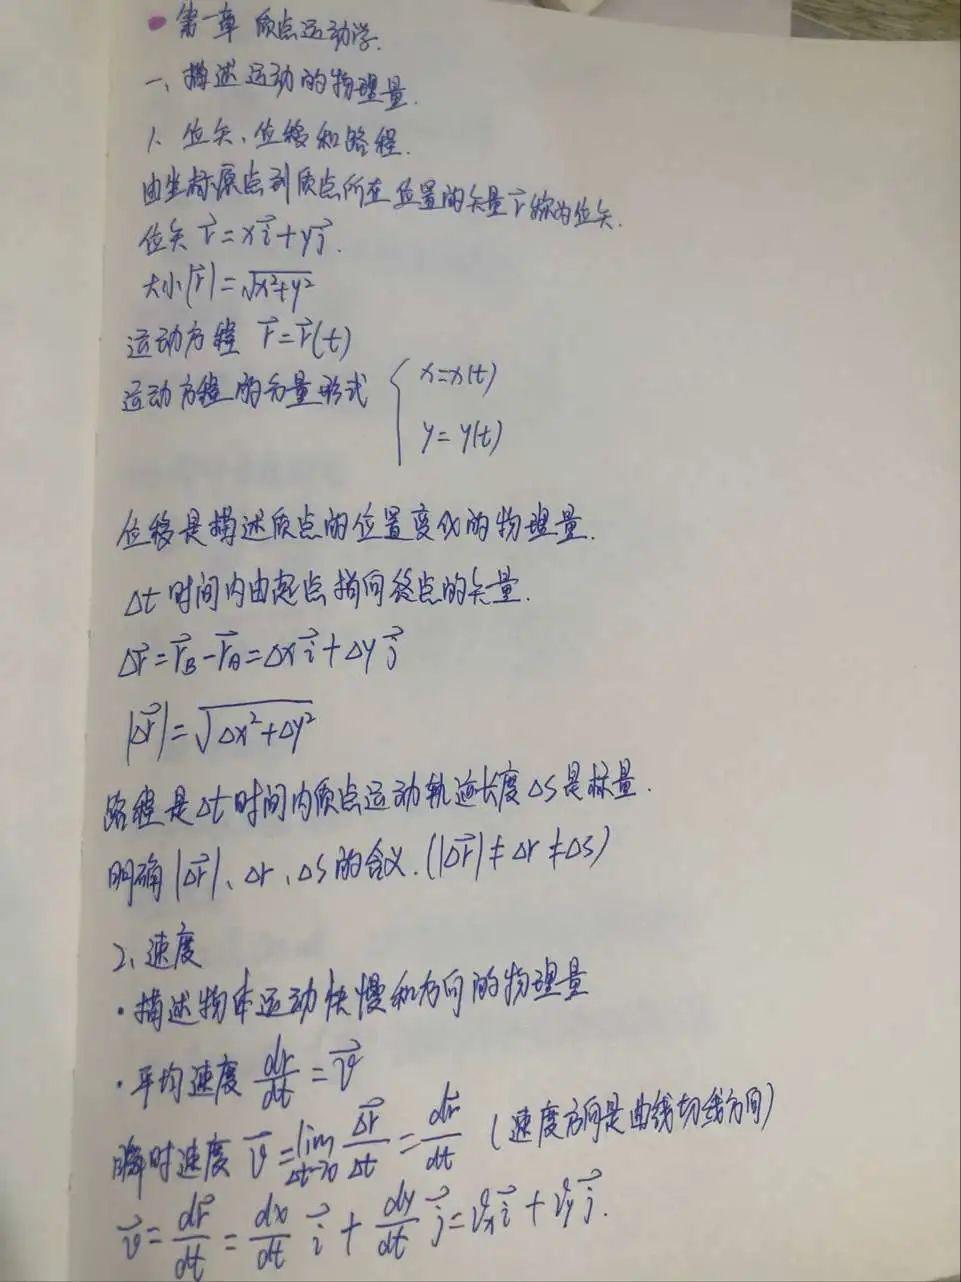 第一章 质点运动学.
一、描述运动的物理量.
1、位矢、位移和路程.
由坐标原点到质点所在位置的矢量 r⃗ 称为位矢.
位矢 r⃗=xi⃗+yj⃗.
大小|r⃗|=√(x²+y²)
运动方程 r⃗=r⃗(t)
运动方程的分量形式 { x=x(t)
y=y(t)
位移是描述质点的位置变化的物理量.
Δt时间内由起点指向终点的矢量.
Δr⃗=r⃗_B-r⃗_A=Δxi⃗+Δyj⃗
|Δr⃗|=√(Δx²+Δy²)
路程是Δt时间内质点运动轨迹长度ΔS是标量.
明确|Δr⃗|、Δr、ΔS的含义.(|Δr⃗|≠Δr≠ΔS)
2、速度
·描述物体运动快慢和方向的物理量
·平均速度 dr/dt=v⃗
瞬时速度 v⃗=lim(Δt→0) Δr⃗/Δt=dr⃗/dt (速度方向是曲线切线方向)
v⃗=dr⃗/dt=dx/dt i⃗+dy/dt j⃗=v_x i⃗+v_y j⃗.